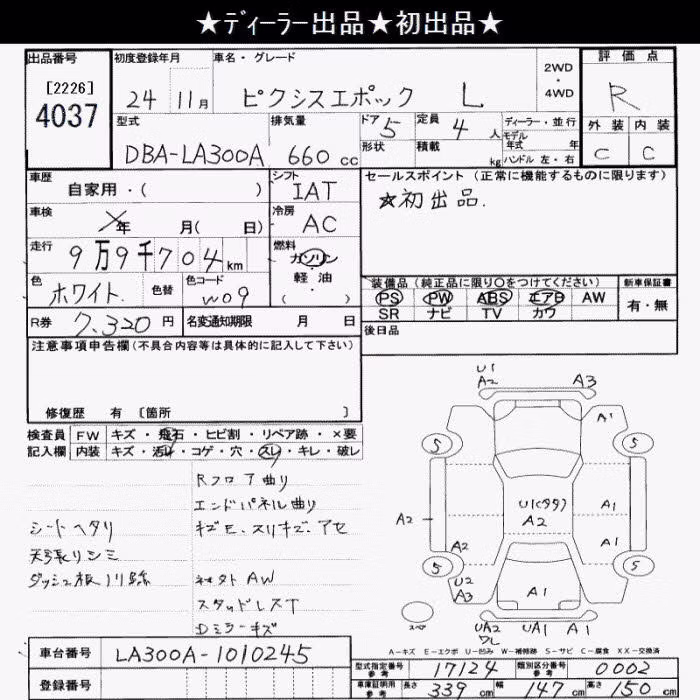 ★ディーラー出品★初出品★
出品番号
[2226]
4037
初度登録年月
24 11月
車名・グレード
ピクシスエポック L
2WD
・
4WD
評価点
R
外装 内装
C C
型式
DBA-LA300A
排気量
660 cc
ドア 5
形状
定員 4 人
積載 kg
ディーラー・並行
モデル
年式 年
ハンドル 左・右
車歴
自家用・( )
シフト
IAT
車検
年 月( 日)
冷房
AC
走行
9万9千704 km
燃料
ガソリン
・
軽・油
色
ホワイト
色替
色コード
W09
R券 7,320 円
名変通知期限 月 日
セールスポイント(正常に機能するものに限ります)
☆初出品.
装備品(純正品に限り○をつけてください)
PS PW ABS エアB AW
SR ナビ TV カワ
新車保証書
有・無
後日品
注意事項申告欄(不具合内容等は具体的に記入して下さい)
修復歴 有 〔箇所 〕
検査員
記入欄
FW キズ・飛石・ヒビ割・リペア跡・×要
内装 キズ・汚れ・コゲ・穴・スレ・キレ・破レ
Rフロア曲り
エンドパネル曲り
シートヘタリ
キズE、スリキズ、アセ
天張リシミ
ダッシュ板ハリ跡
社外AW
スタッドレスT
Dミラーキズ
U1
A2
A3
A1
5
5
A2
U1(タタ)
A2
A1
A2
A1
5
5
U2
A3
A1
スペア
UA2
ワレ
UA1
A1
A-キズ E-エクボ U-凹み W-補修跡 S-サビ C-腐食 XX-交換済
車台番号 LA300A-1010245
登録番号
型式指定番号
参考
17124
類別区分番号
参考
0002
車庫証明用
参考
長さ 339 cm 幅 147 cm 高さ 150 cm